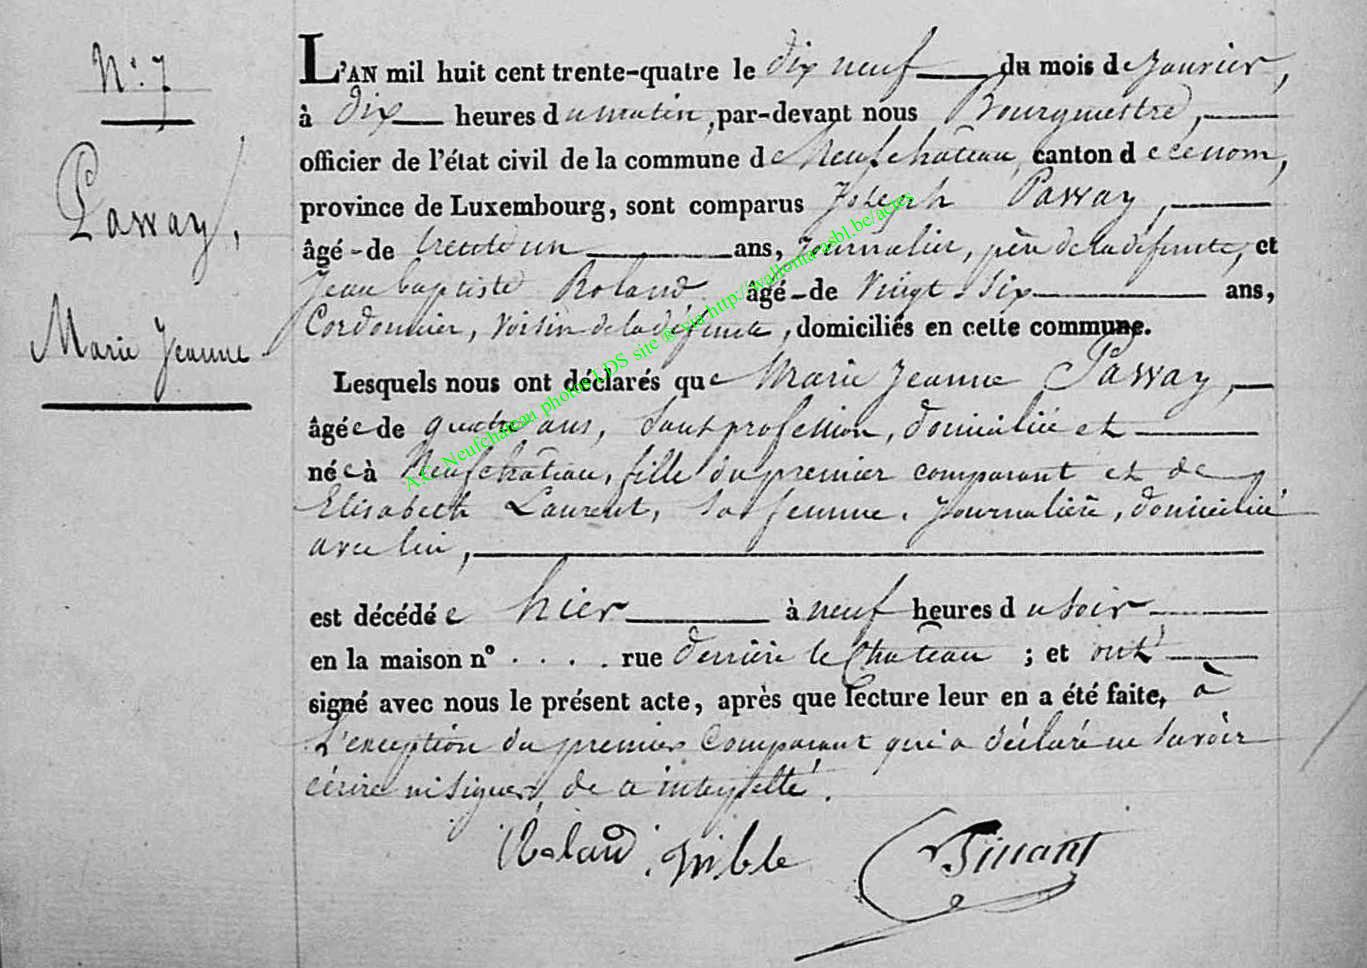 N.° 7
Passay,
Marie Jeanne
L'AN mil huit cent trente-quatre le dix neuf du mois de Janvier,
à dix heures du matin, par-devant nous Bourgmestre,
officier de l'état civil de la commune de Neufchâteau, canton de ce nom,
province de Luxembourg, sont comparus Joseph Passay,
âgé-de trente un ans, Journalier, père de la défunte, et
Jean baptiste Roland, âgé-de vingt six ans,
Cordonnier, voisin de la défunte, domiciliés en cette commune.
Lesquels nous ont déclarés que Marie Jeanne Passay,
âgée de quatre ans, sans profession, domiciliée et
née à Neufchâteau, fille du premier comparant et de
Elisabeth Laurent, sa femme, Journalière, domiciliée
avec lui,
est décédée hier à neuf heures du soir
en la maison n° . . . . rue derrière le Château ; et ont
signé avec nous le présent acte, après que lecture leur en a été faite, à
L'exception du premier Comparant qui a déclaré ne savoir
écrire ni signer, de ce interpellé.
Roland
A.C. Neufchateau photos LDS site ® via http://wallonia-asbl.be/actes